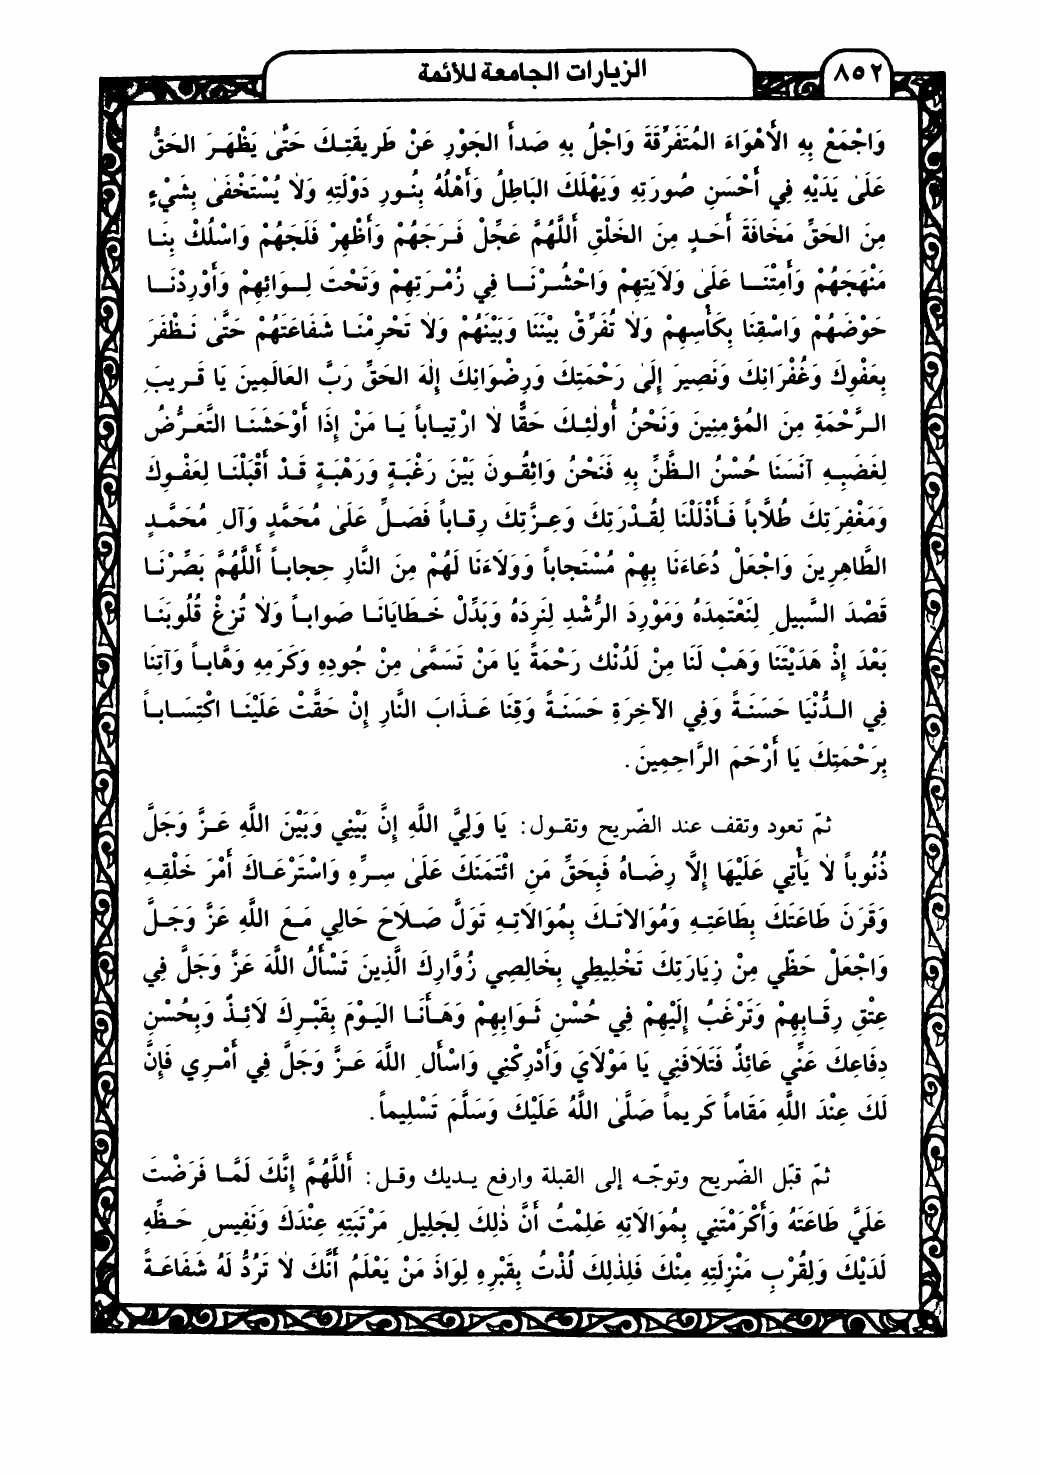 ٨٥٢
الزيارات الجامعة للأئمة
وَاجْمَعْ بِهِ الأَهْوَاءَ المُتَفَرِّقَةَ وَاجْلُ بهِ صَدأَ الجَوْرِ عَنْ طَرِيقَتِكَ حَتَّىٰ يَظْهَرَ الحَقُّ
عَلَىٰ يَدَيْهِ فِي أَحْسَنِ صُورَتِهِ وَيَهْلَكَ البَاطِلُ وَأَهْلُهُ بِنُورِ دَوْلَتِهِ وَلاٰ يُسْتَخْفَىٰ بِشَيْءٍ
مِنَ الحَقِّ مَخَافَةَ أَحَدٍ مِنَ الخَلْقِ أَللَّهُمَّ عَجِّلْ فَرَجَهُمْ وَأَظْهِرْ فَلَجَهُمْ وَاسْلُكْ بِنَا
مَنْهَجَهُمْ وَأَمِتْنَا عَلَىٰ وَلاَيَتِهِمْ وَاحْشُرْنَا فِي زُمْرَتِهِمْ وَتَحْتَ لِوَائِهِمْ وَأَوْرِدْنَا
حَوْضَهُمْ وَاسْقِنَا بِكَأْسِهِمْ وَلاٰ تُفَرِّقْ بَيْنَنَا وَبَيْنَهُمْ وَلاٰ تَحْرِمْنَا شَفَاعَتَهُمْ حَتَّىٰ نَظْفَرَ
بِعَفْوِكَ وَغُفْرَانِكَ وَنَصِيرَ إِلَىٰ رَحْمَتِكَ وَرِضْوَانِكَ إِلٰهَ الحَقِّ رَبَّ العَالَمِينَ يَا قَرِيبَ
الرَّحْمَةِ مِنَ المُؤمِنِينَ وَنَحْنُ أُولٰئِكَ حَقًّا لاٰ ارْتِيَاباً يَا مَنْ إِذَا أَوْحَشَنَا التَّعَرُّضُ
لِغَضَبِهِ آنَسَنَا حُسْنُ الظَّنِّ بِهِ فَنَحْنُ وَاثِقُونَ بَيْنَ رَغْبَةٍ وَرَهْبَةٍ قَدْ أَقْبَلْنَا لِعَفْوِكَ
وَمَغْفِرَتِكَ طُلاَّباً فَأَذْلَلْنَا لِقُدْرَتِكَ وَعِزَّتِكَ رِقَاباً فَصَلِّ عَلَىٰ مُحَمَّدٍ وَآلِ مُحَمَّدٍ
الطَّاهِرِينَ وَاجْعَلْ دُعَاءَنَا بِهِمْ مُسْتَجاباً وَوَلاَءَنَا لَهُمْ مِنَ النَّارِ حِجاباً أَللَّهُمَّ بَصِّرْنَا
قَصْدَ السَّبِيلِ لِنَعْتَمِدَهُ وَمَوْرِدَ الرُّشْدِ لِنَرِدَهُ وَبَدِّلْ خَطَايَانَا صَوَاباً وَلاٰ تُزِغْ قُلُوبَنَا
بَعْدَ إِذْ هَدَيْتَنَا وَهَبْ لَنَا مِنْ لَدُنْك رَحْمَةً يَا مَنْ تَسَمَّىٰ مِنْ جُودِهِ وَكَرَمِهِ وَهَّاباً وَآتِنَا
فِي الدُّنْيَا حَسَنَةً وَفِي الآخِرَةِ حَسَنَةً وَقِنَا عَذَابَ النَّارِ إِنْ حَقَّتْ عَلَيْنَا اكْتِسَاباً
بِرَحْمَتِكَ يَا أَرْحَمَ الرَّاحِمِينَ.
ثمّ تعود وتقف عند الضّريح وتقول: يَا وَلِيَّ اللَّهِ إِنَّ بَيْنِي وَبَيْنَ اللَّهِ عَزَّ وَجَلَّ
ذُنُوباً لاٰ يَأْتِي عَلَيْهَا إِلاَّ رِضَاهُ فَبِحَقِّ مَنِ ائْتَمَنَكَ عَلَىٰ سِرِّهِ وَاسْتَرْعَاكَ أَمْرَ خَلْقِهِ
وَقَرَنَ طَاعَتَكَ بِطَاعَتِهِ وَمُوَالاتَكَ بِمُوَالاَتِهِ تَوَلَّ صَلاَحَ حَالِي مَعَ اللَّهِ عَزَّ وَجَلَّ
وَاجْعَلْ حَظِّي مِنْ زِيَارَتِكَ تَخْلِيطِي بِخَالِصِي زُوَّارِكَ الَّذِينَ تَسْأَلُ اللَّهَ عَزَّ وَجَلَّ فِي
عِتْقِ رِقَابِهِمْ وَتَرْغَبُ إِلَيْهِمْ فِي حُسْنِ ثَوَابِهِمْ وَهَأَنَا اليَوْمَ بِقَبْرِكَ لاَئِذٌ وَبِحُسْنِ
دِفَاعِكَ عَنِّي عَائِذٌ فَتَلاَفَنِي يَا مَوْلاَيَ وَأَدْرِكْنِي وَاسْأَلِ اللَّهَ عَزَّ وَجَلَّ فِي أَمْرِي فَإِنَّ
لَكَ عِنْدَ اللَّهِ مَقَاماً كَرِيماً صَلَّىٰ اللَّهُ عَلَيْكَ وَسَلَّمَ تَسْلِيماً.
ثمّ قبّل الضّريح وتوجّه إلى القبلة وارفع يديك وقل: أَللَّهُمَّ إِنَّكَ لَمَّا فَرَضْتَ
عَلَيَّ طَاعَتَهُ وَأَكْرَمْتَنِي بِمُوَالاَتِهِ عَلِمْتُ أَنَّ ذٰلِكَ لِجَلِيلِ مَرْتَبَتِهِ عِنْدَكَ وَنَفِيسِ حَظِّهِ
لَدَيْكَ وَلِقُرْبِ مَنْزِلَتِهِ مِنْكَ فَلِذٰلِكَ لُذْتُ بِقَبْرِهِ لِوَاذَ مَنْ يَعْلَمُ أَنَّكَ لاٰ تَرُدُّ لَهُ شَفَاعَةً